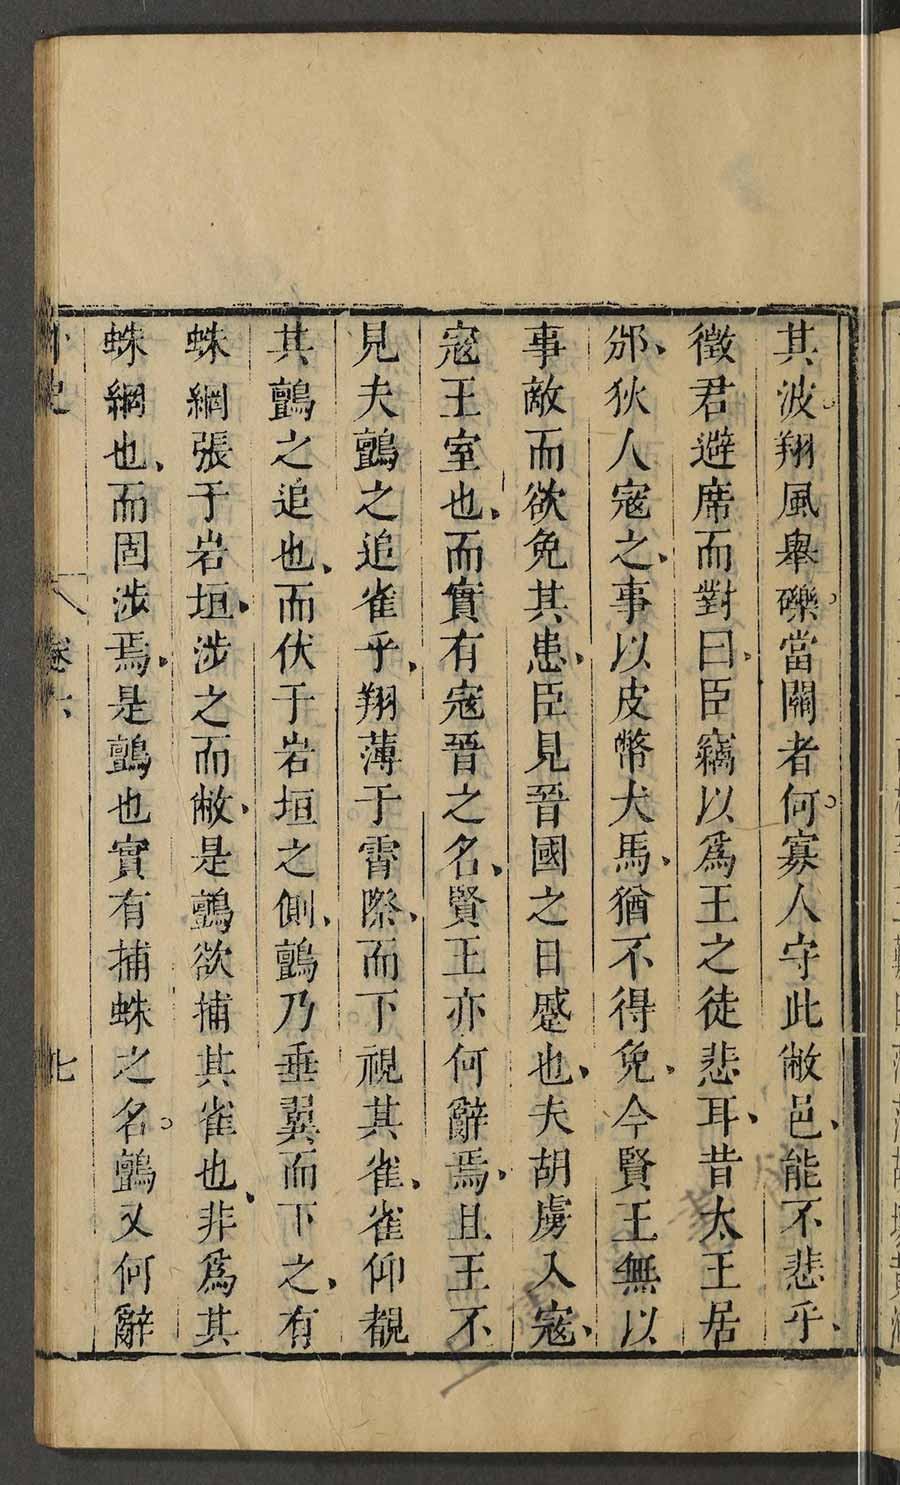 其波翔風舉礫當關者何寡人守此敝邑能不悲乎
徵君避席而對曰臣竊以爲王之徒悲耳昔太王居
邠狄人寇之事以皮幣犬馬猶不得免今賢王無以
事敵而欲免其患臣見晉國之日蹙也夫胡虜入寇
寇王室也而實有寇晉之名賢王亦何辭焉且王不
見夫鸇之追雀乎翔薄于霄際而下視其雀雀仰覩
其鸇之追也而伏于岩垣之側鸇乃垂翼而下之有
蛛網張于岩垣涉之而敝是鸇欲捕其雀也非爲其
蛛網也而固涉焉是鸇也實有捕蛛之名鸇又何辭
卷六
七